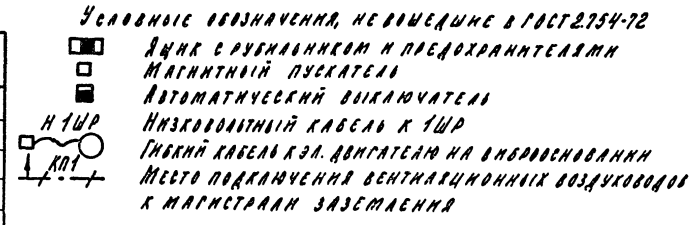 Условные обозначения, не вошедшие в ГОСТ 2.754-72
Ящик с рубильником и предохранителями
Магнитный пускатель
Автоматический выключатель
Н 1ШР Низковольтный кабель к 1ШР
Гибкий кабель к эл. двигателю на виброосновании
КП1 Место подключения вентиляционных воздуховодов
к магистрали заземления